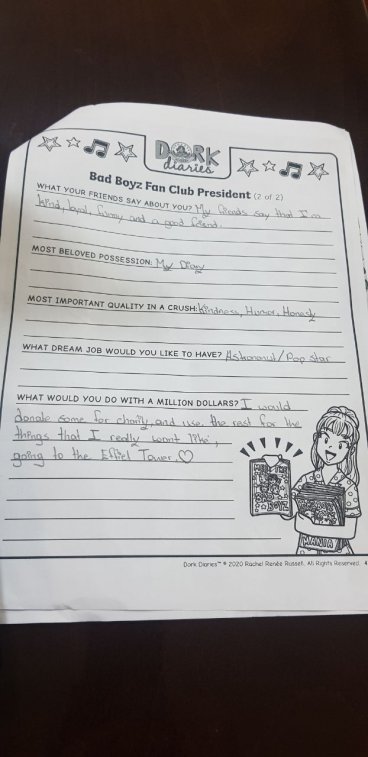 DORK
diaries
Bad Boyz Fan Club President (2 of 2)
WHAT YOUR FRIENDS SAY ABOUT YOU? My friends say that I'm
kind, loyal, funny and a good friend.
MOST BELOVED POSSESSION: My Diary
MOST IMPORTANT QUALITY IN A CRUSH: Kindness, Humor, Honesty
WHAT DREAM JOB WOULD YOU LIKE TO HAVE? Astronaut/Pop star
WHAT WOULD YOU DO WITH A MILLION DOLLARS? I would
donate some for charity and use the rest for the
things that I really want like,
going to the Effiel Tower.
BAD
BOYZ
MANIA
Dork Diaries™ © 2020 Rachel Renée Russell. All Rights Reserved. 4